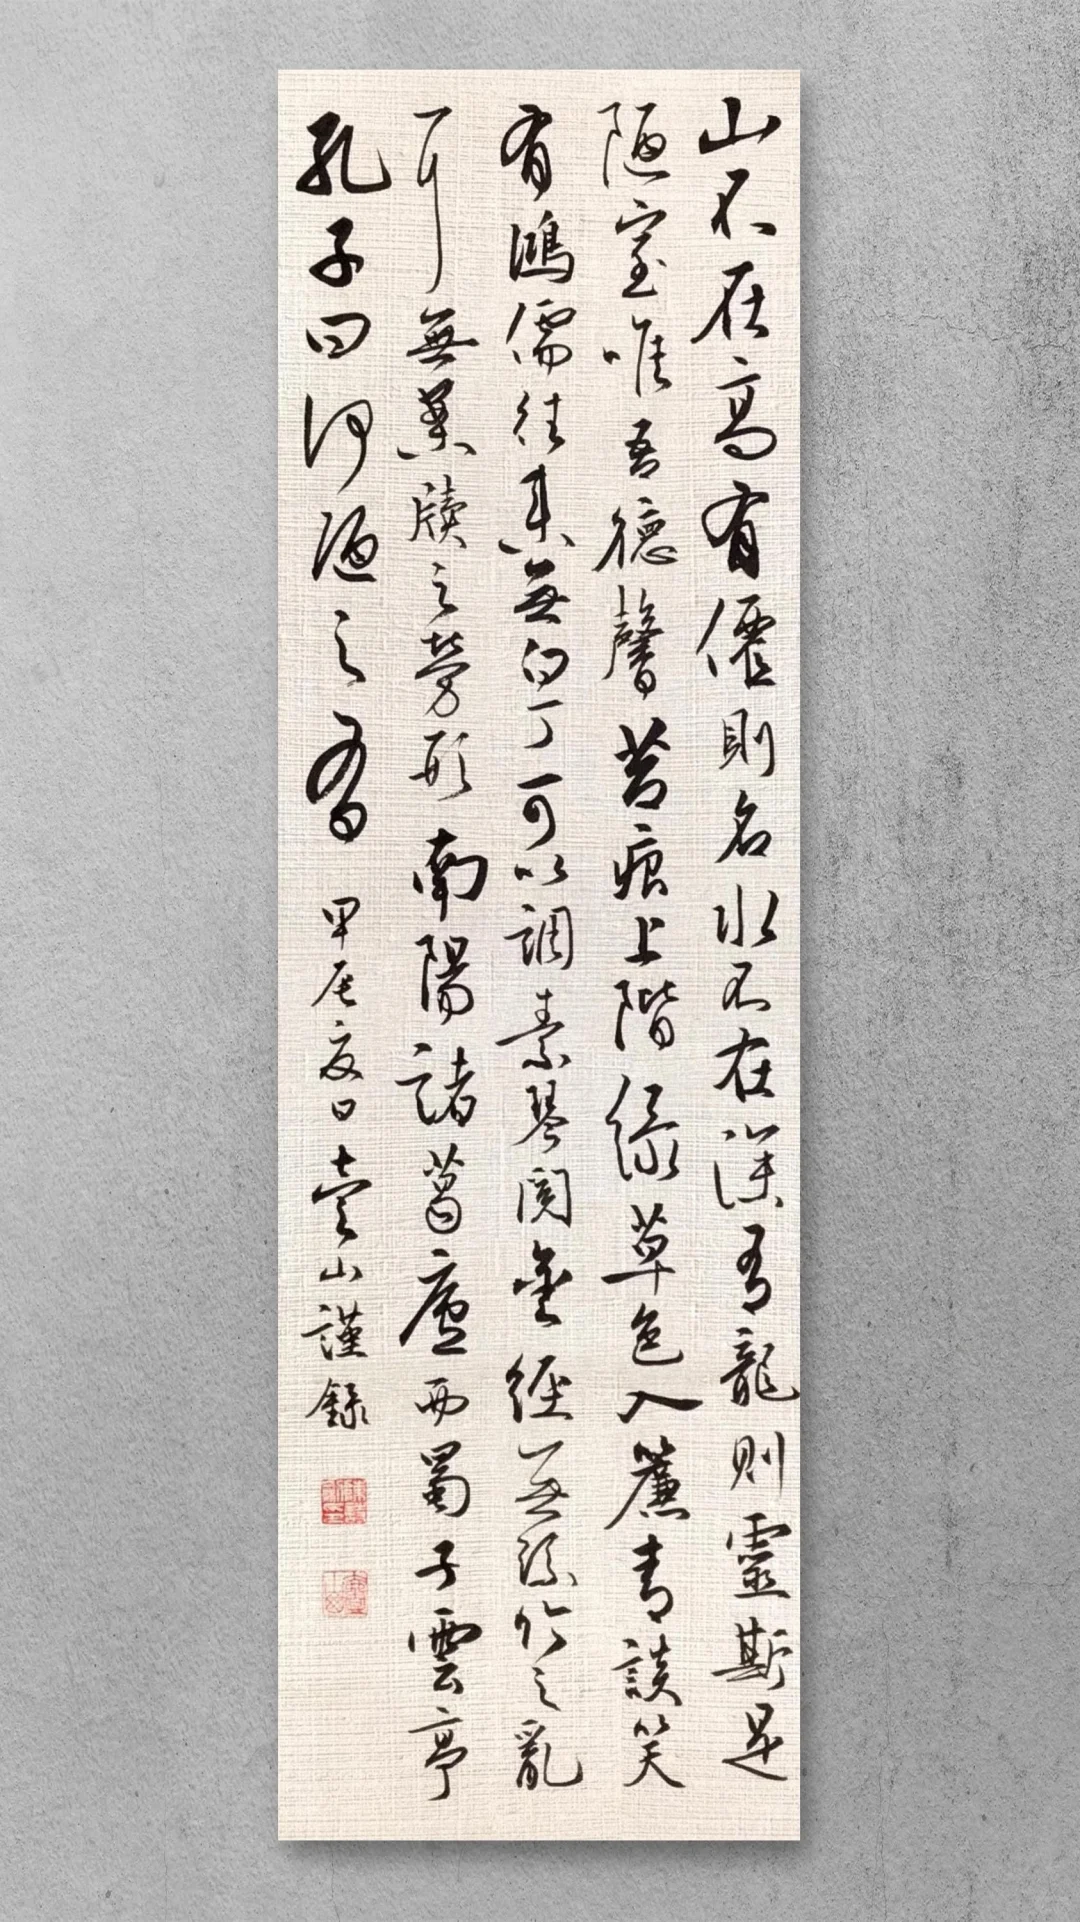 山不在高有僊則名水不在深有龍則靈斯是
陋室唯吾德馨苔痕上階綠草色入簾青談笑
有鴻儒往来無白丁可以調素琴閱金經無絲竹之亂
耳無案牘之勞形南陽諸葛廬西蜀子雲亭
孔子曰何陋之有 甲辰夏日壹山謹錄